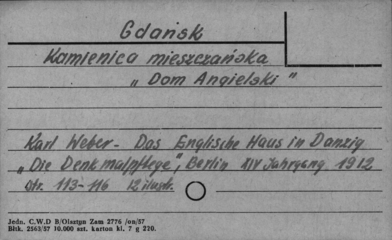 Gdańsk
Kamienica mieszczańska
„Dom Angielski”
Karl Weber - Das Englische Haus in Danzig
„Die Denkmalpflege”, Berlin XIV Jahrgang 1912
str. 113-116 12 ilustr.
Jedn. C.W.D B/Olsztyn Zam 2776 /on/57
Bltk. 2563/57 10.000 szt. karton kl. 7 g 220.